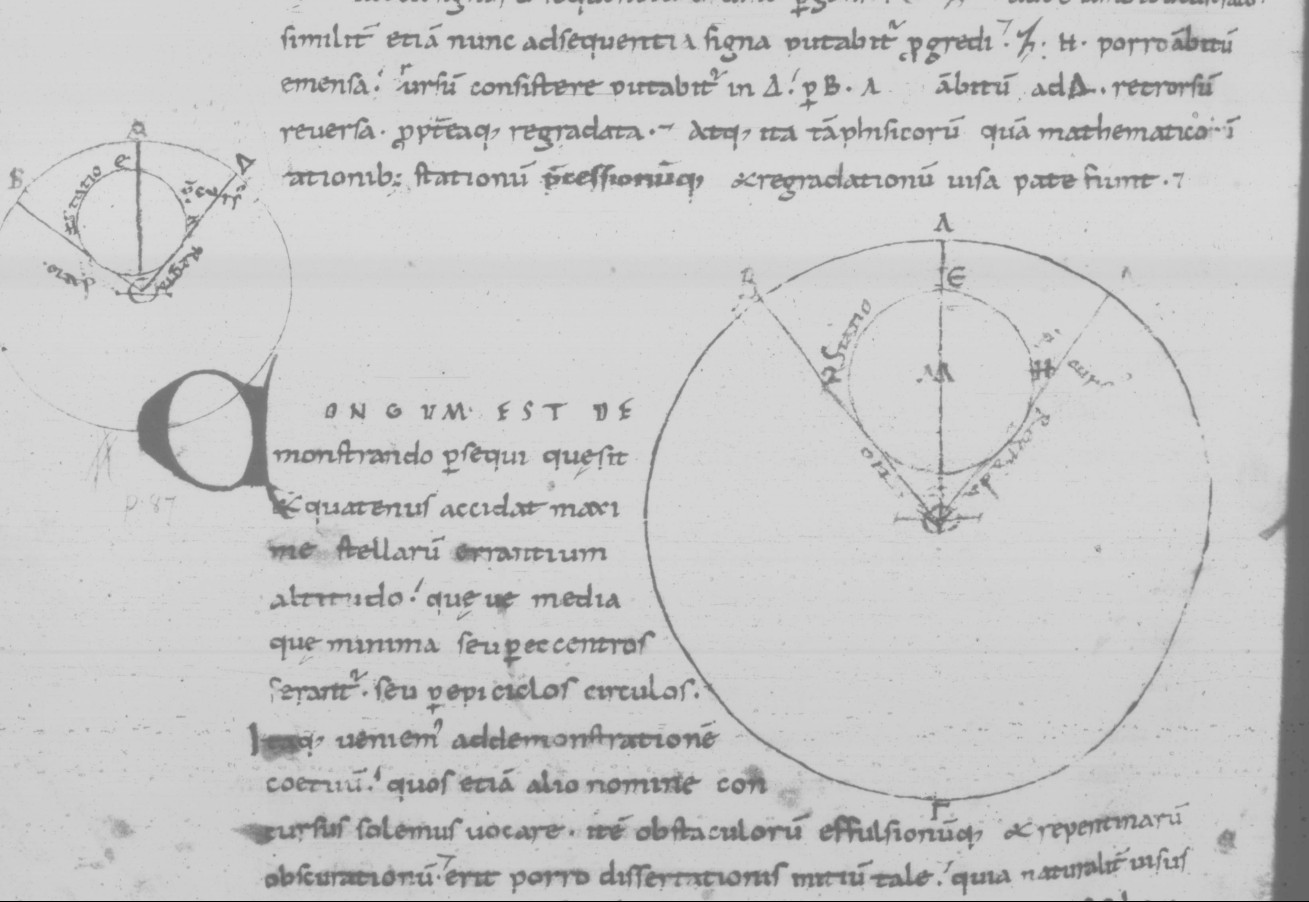 similit̄ etiā nunc adsequentia signa putabit᷑ ꝓgredi. H. porro ābitū
emensa. rursū consistere putabit᷑ in Δ. ꝑ B. Λ ābitū ad Δ. retrorsū
reuersa. ꝓpt̄eaq; regradata. Atq; ita tā phisicorū quā mathematicorū
rationib; stationū p̄cessionūq; & regradationū uisa patefiunt.
a
B e Δ
statio
Λ
B E Λ
Statio
M H
ONGUM EST DE
monstrando ꝑsequi quęsit
& quatenus accidat maxi
me stellarū errantium
altitudo. quę ue media
quę minima seu ꝑ eccentros
ferant᷑. seu ꝑ epiciclos circulos.
Itaq; ueniem᷒ ad demonstrationē
coetuū. quos etiā alio nomine con
cursus solemus uocare. itē obstaculorū effulsionūq; & repentinarū
Γ
obscurationū. erit porro dissertationis initiū tale. quia naturalit̄ uisus
p. 87